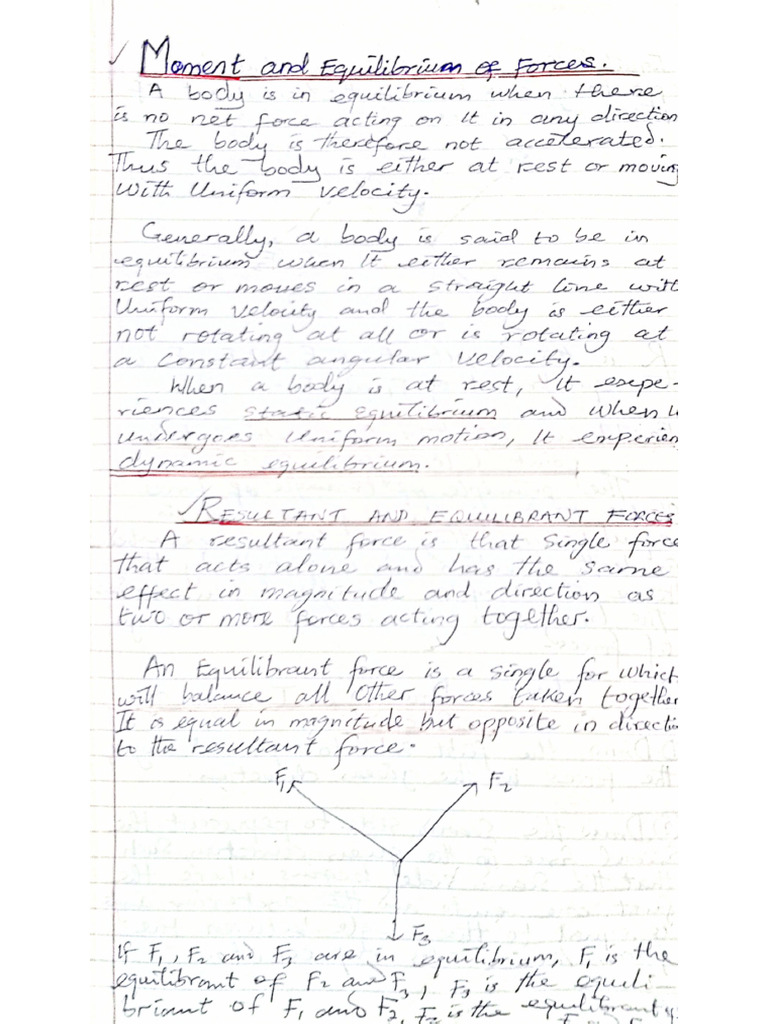 Moment and Equilibrium of Forces.
A body is in equilibrium when there
is no net force acting on it in any direction
The body is therefore not accelerated.
Thus the body is either at rest or moving
with Uniform velocity.
Generally, a body is said to be in
equilibrium when it either remains at
rest or moves in a straight line with
Uniform velocity and the body is either
not rotating at all or is rotating at
a constant angular velocity.
When a body is at rest, it expe-
riences static equilibrium and when
undergoes Uniform motion, it experien
dynamic equilibrium.
RESULTANT AND EQUILIBRANT FORCES
A resultant force is that single force
that acts alone and has the same
effect in magnitude and direction as
two or more forces acting together.
An Equilibrant force is a single for which
will balance all other forces taken together
It is equal in magnitude but opposite in directio
to the resultant force.
F1 F2
F3
If F1, F2 and F3 are in equilibrium, F1 is the
equilibrant of F2 and F3, F3 is the equili-
briant of F1 and F2, F2 is the equilibrant